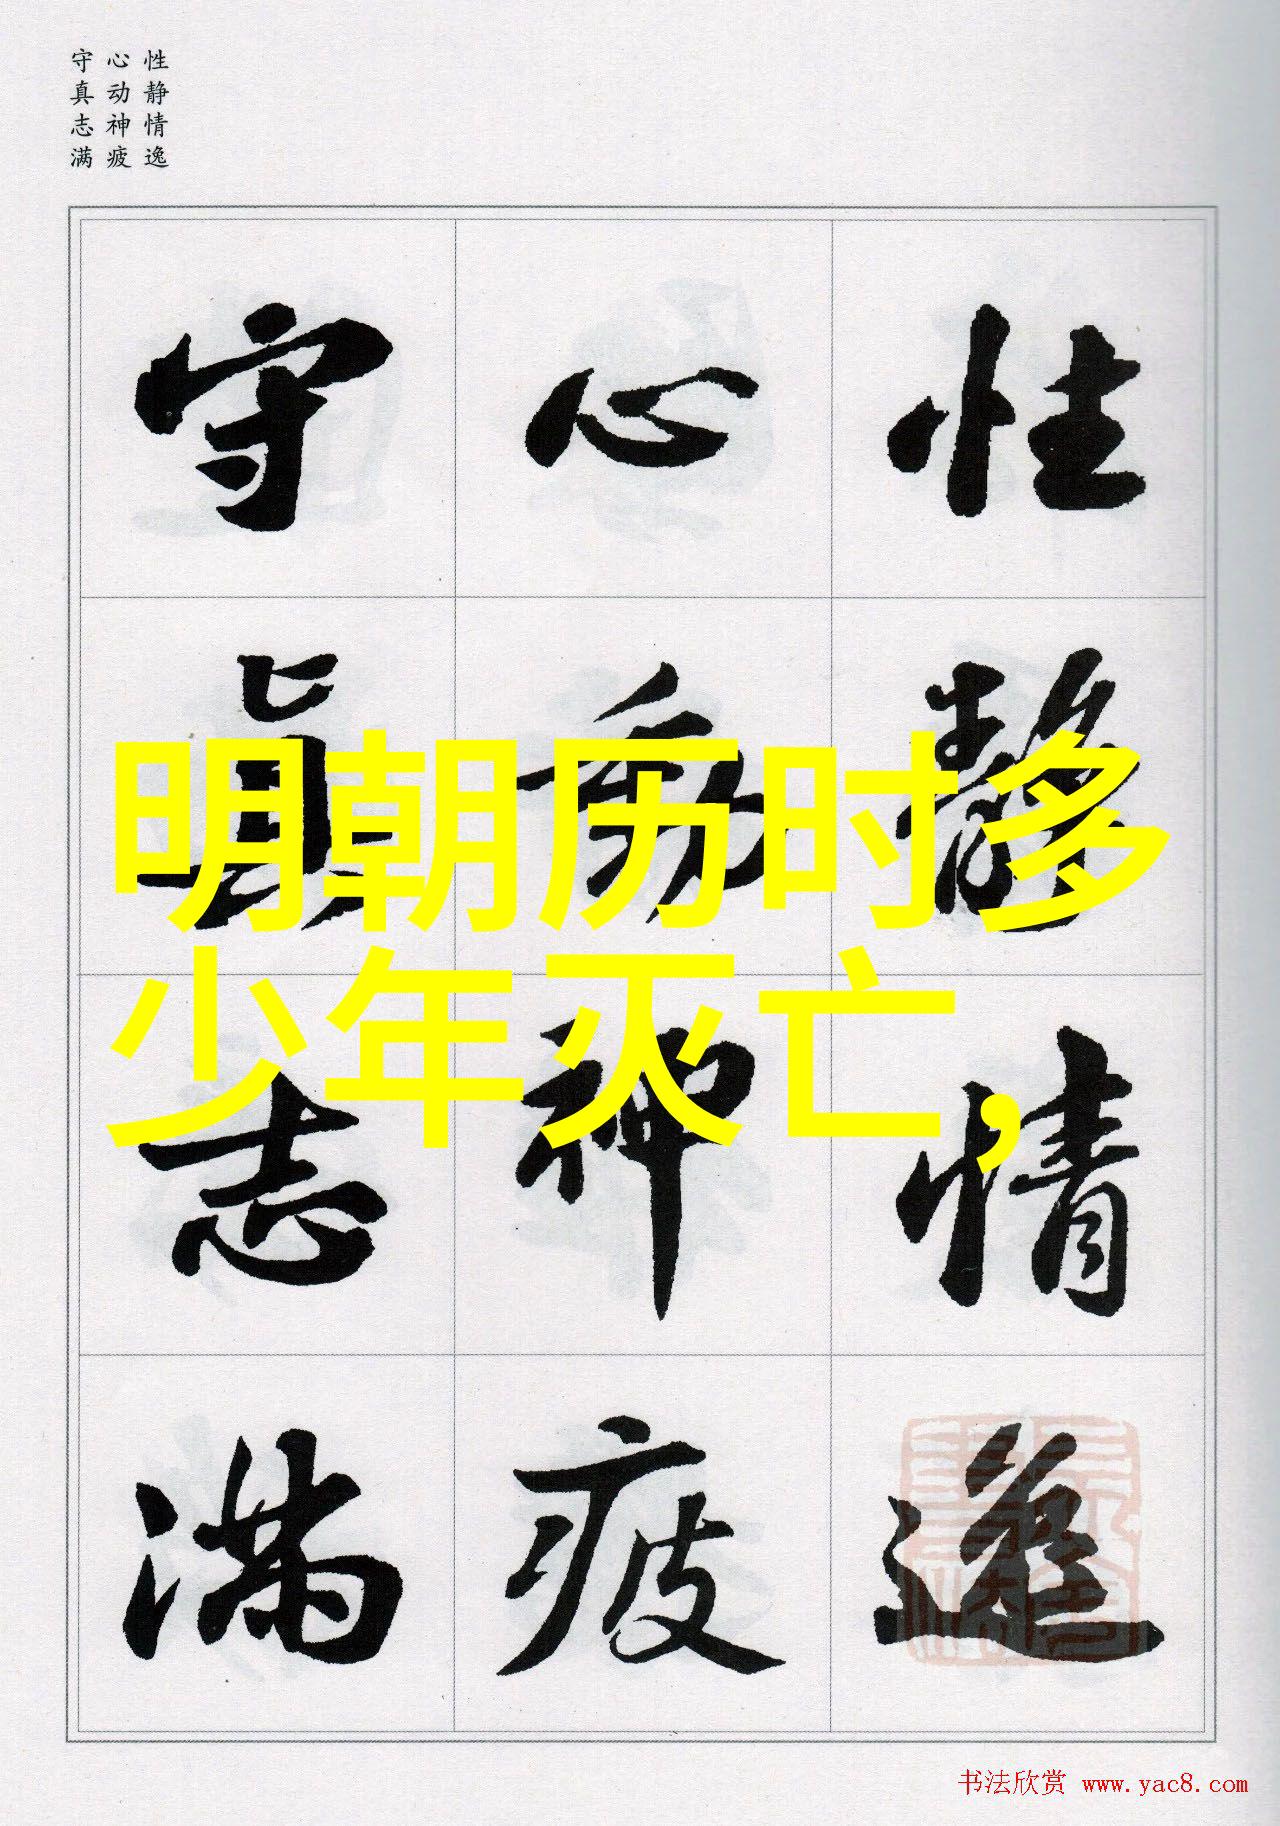 性静情逸
心动神疲
守真志满
性静情逸
心動神疲
守真志满
明朝历时多
少年灭亡,
书法欣赏 www.yac8.com